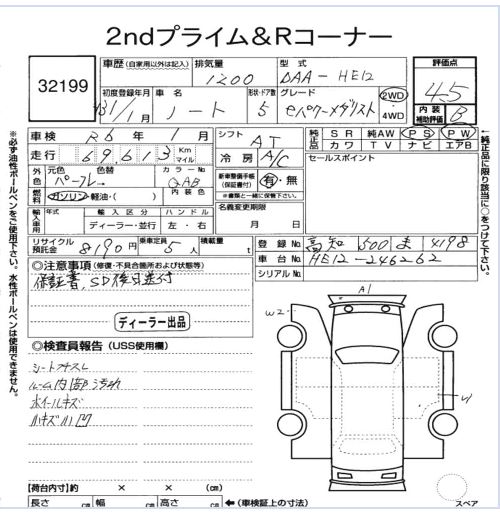 2ndプライム&Rコーナー
32199
車歴 (自家用以外は記入) 排気量 1200 型式 DAA-HE12
初度登録年月 H31/1月 車名 ノート 形状・ドア数 5 グレード eパワーメダリスト 2WD 4WD
評価点 4.5
内装補助評価 B
車検 R6年1月
走行 69,613 Km マイル
シフト AT
冷房 A/C
外色 元色 パープル 色替 カラーNo QAB
燃料 ガソリン・軽油・( ) 内装色
輸入車用 年式 輸入区分 ディーラー・並行 ハンドル 左・右
リサイクル預託金 8190円 乗車定員 5人 積載量 t
新車整備手帳(保証書付) 有・無
※書類と一緒に保管下さい。
名義変更期限 月 日
純正品 SR 純AW PS PW
カワ TV ナビ エアB
セールスポイント
登録No. 高知 500 ま 4198
車台No. HE12-246262
シリアルNo.
◎注意事項(修復・不具合箇所および状態等)
保証書、SD後日送付
ディーラー出品
◎検査員報告(USS使用欄)
シートコゲキズ
ルーム内部汚れ
ホイールキズ
小キズ小凹
A1
W2
【荷台内寸】約 × × (cm)
長さ cm 幅 cm 高さ cm ←(車検証上の寸法)
スペア
※必ず油性ボールペンをご使用下さい。水性ボールペンは使用できません。
←純正品に限り該当に○をつけて下さい。